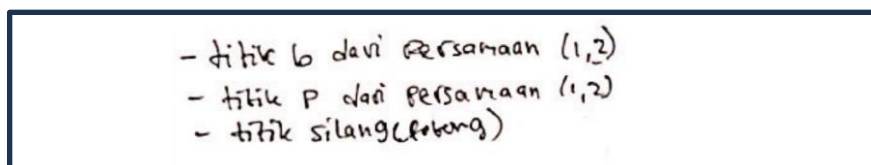 - titik b dari Persamaan (1,2)
- titik P dari Persamaan (1,2)
- titik silang (Potong)